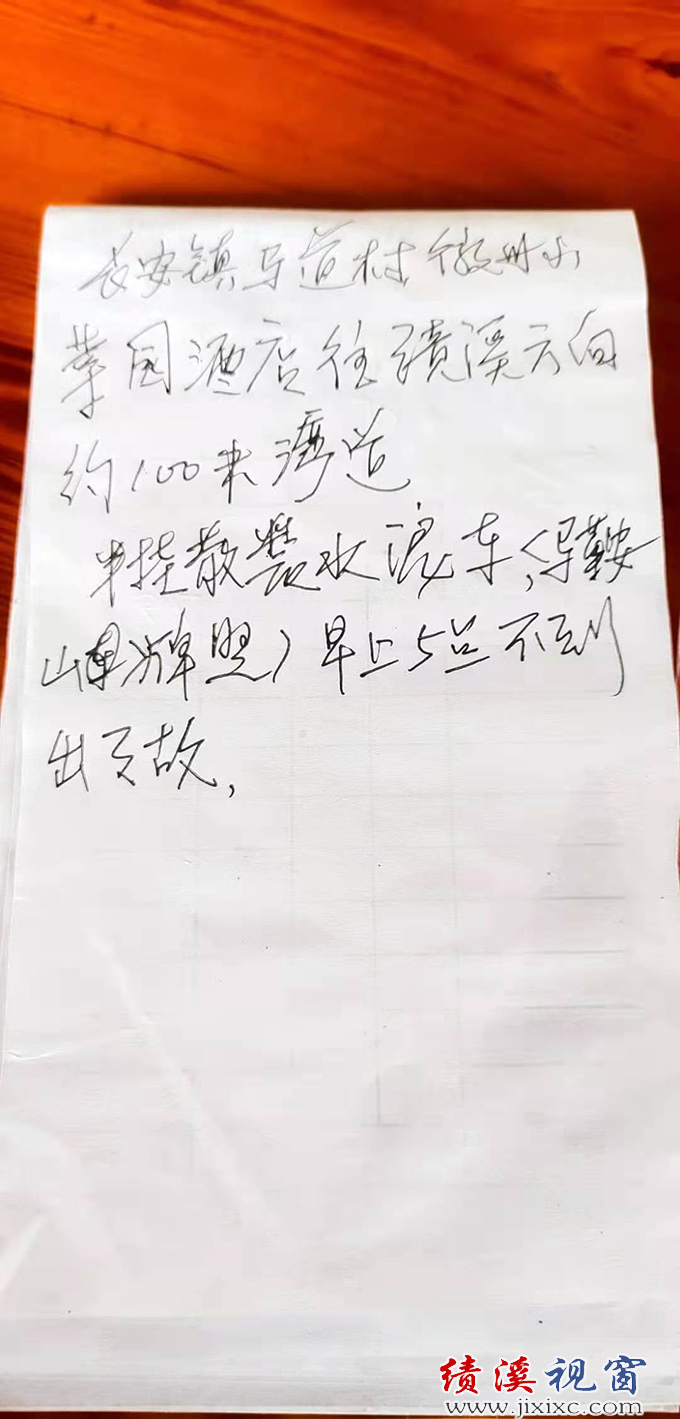 长安镇马道村徽州小
菜园酒店往绩溪方向
约100米湾道
半挂散装水泥车,(马鞍
山车牌照)早上5点不到
出了故,
绩溪视窗
www.jixixc.com